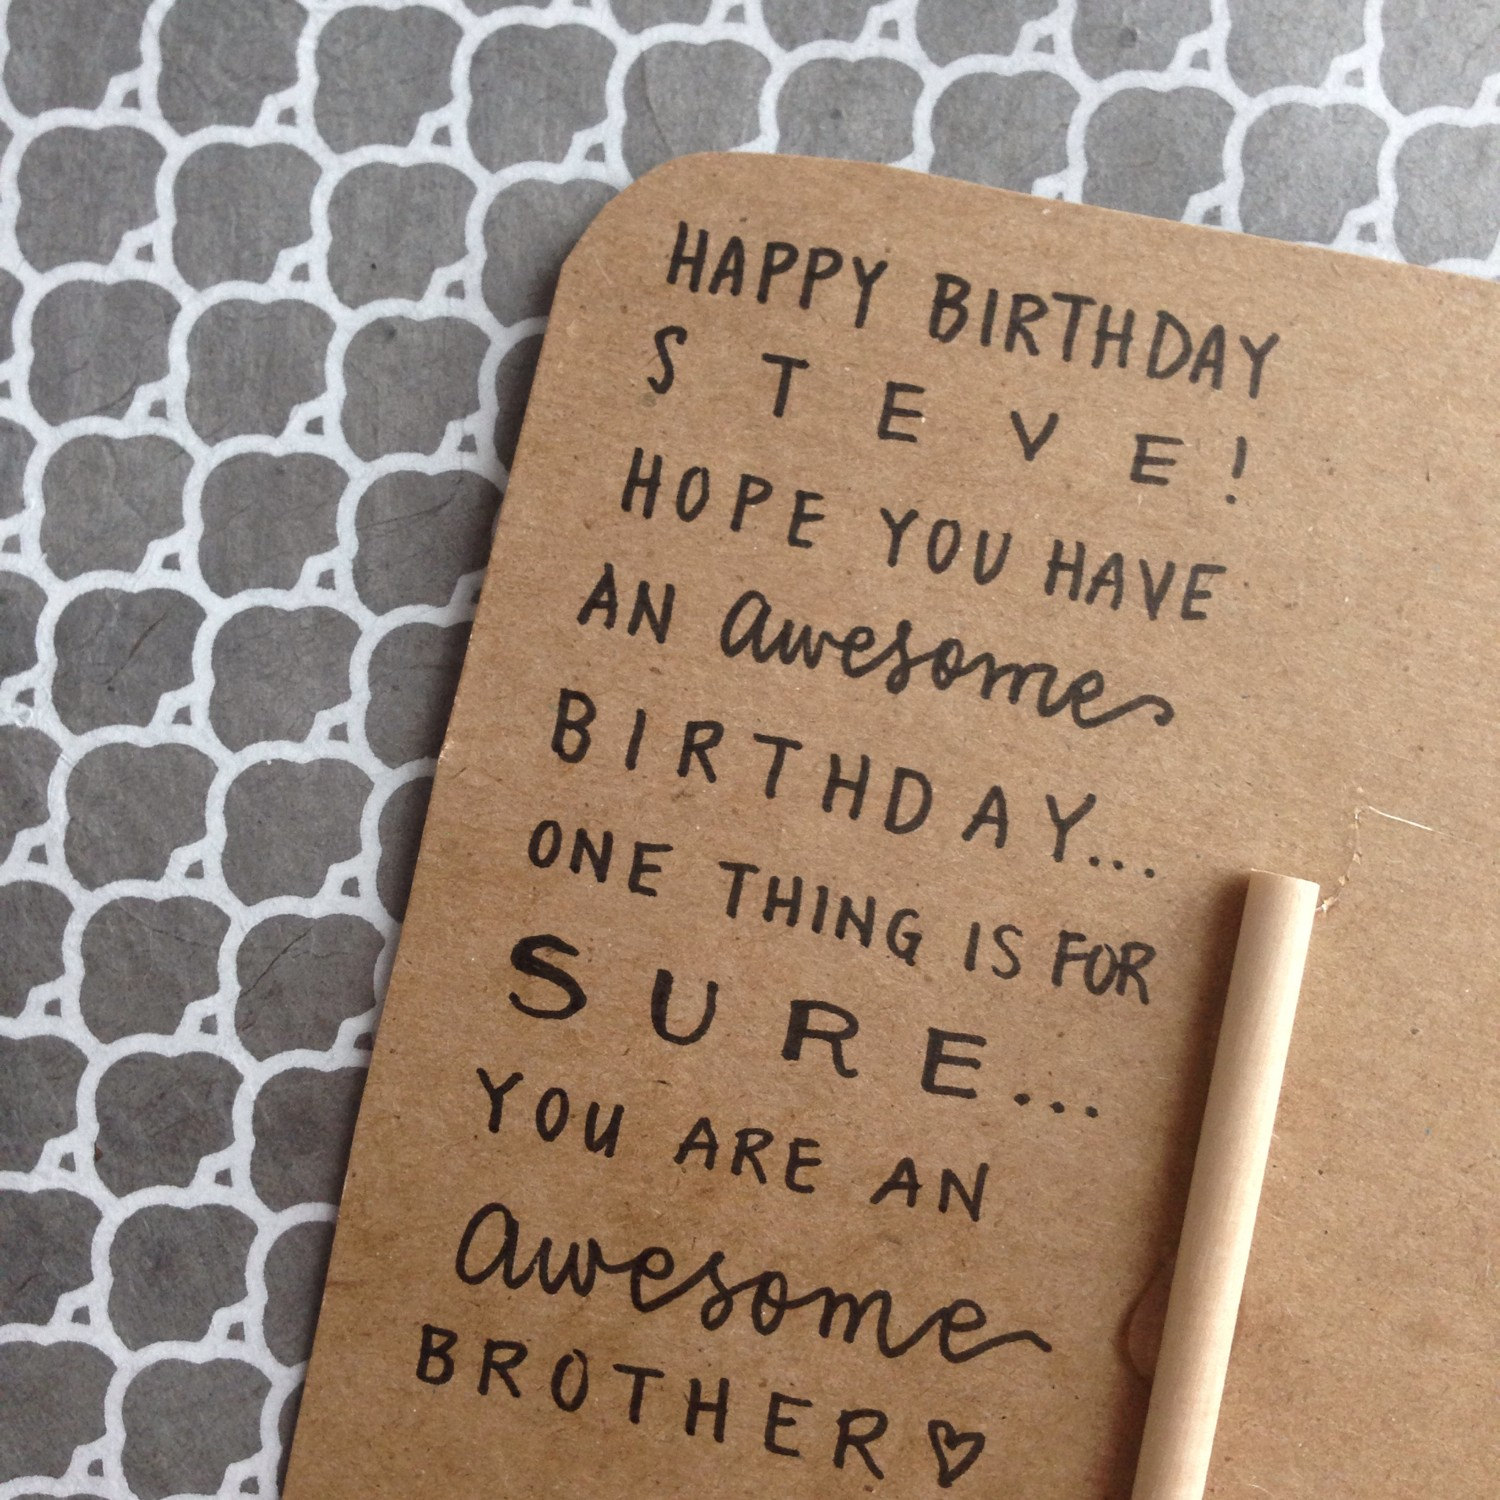 HAPPY BIRTHDAY
STEVE!
HOPE YOU HAVE
AN awesome
BIRTHDAY...
ONE THING IS FOR
SURE...
YOU ARE AN
awesome
BROTHER♡